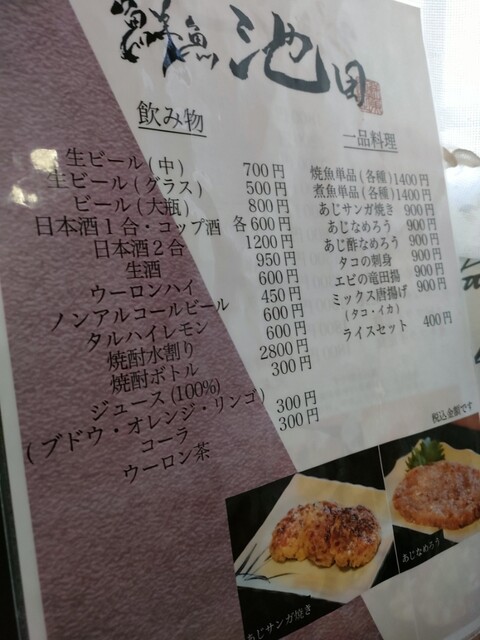 鮮魚 池田
飲み物
生ビール(中) 700円
生ビール(グラス) 500円
ビール(大瓶) 800円
日本酒1合・コップ酒 各600円
日本酒2合 1200円
生酒 950円
ウーロンハイ 600円
ノンアルコールビール 450円
タルハイレモン 600円
焼酎水割り 600円
焼酎ボトル 2800円
ジュース(100%) 300円
(ブドウ・オレンジ・リンゴ)
コーラ 300円
ウーロン茶 300円
一品料理
焼魚単品(各種)1400円
煮魚単品(各種)1400円
あじサンガ焼き 900円
あじなめろう 900円
あじ酢なめろう 900円
タコの刺身 900円
エビの竜田揚 900円
ミックス唐揚げ 900円
(タコ・イカ)
ライスセット 400円
税込金額です
あじサンガ焼き
あじなめろう